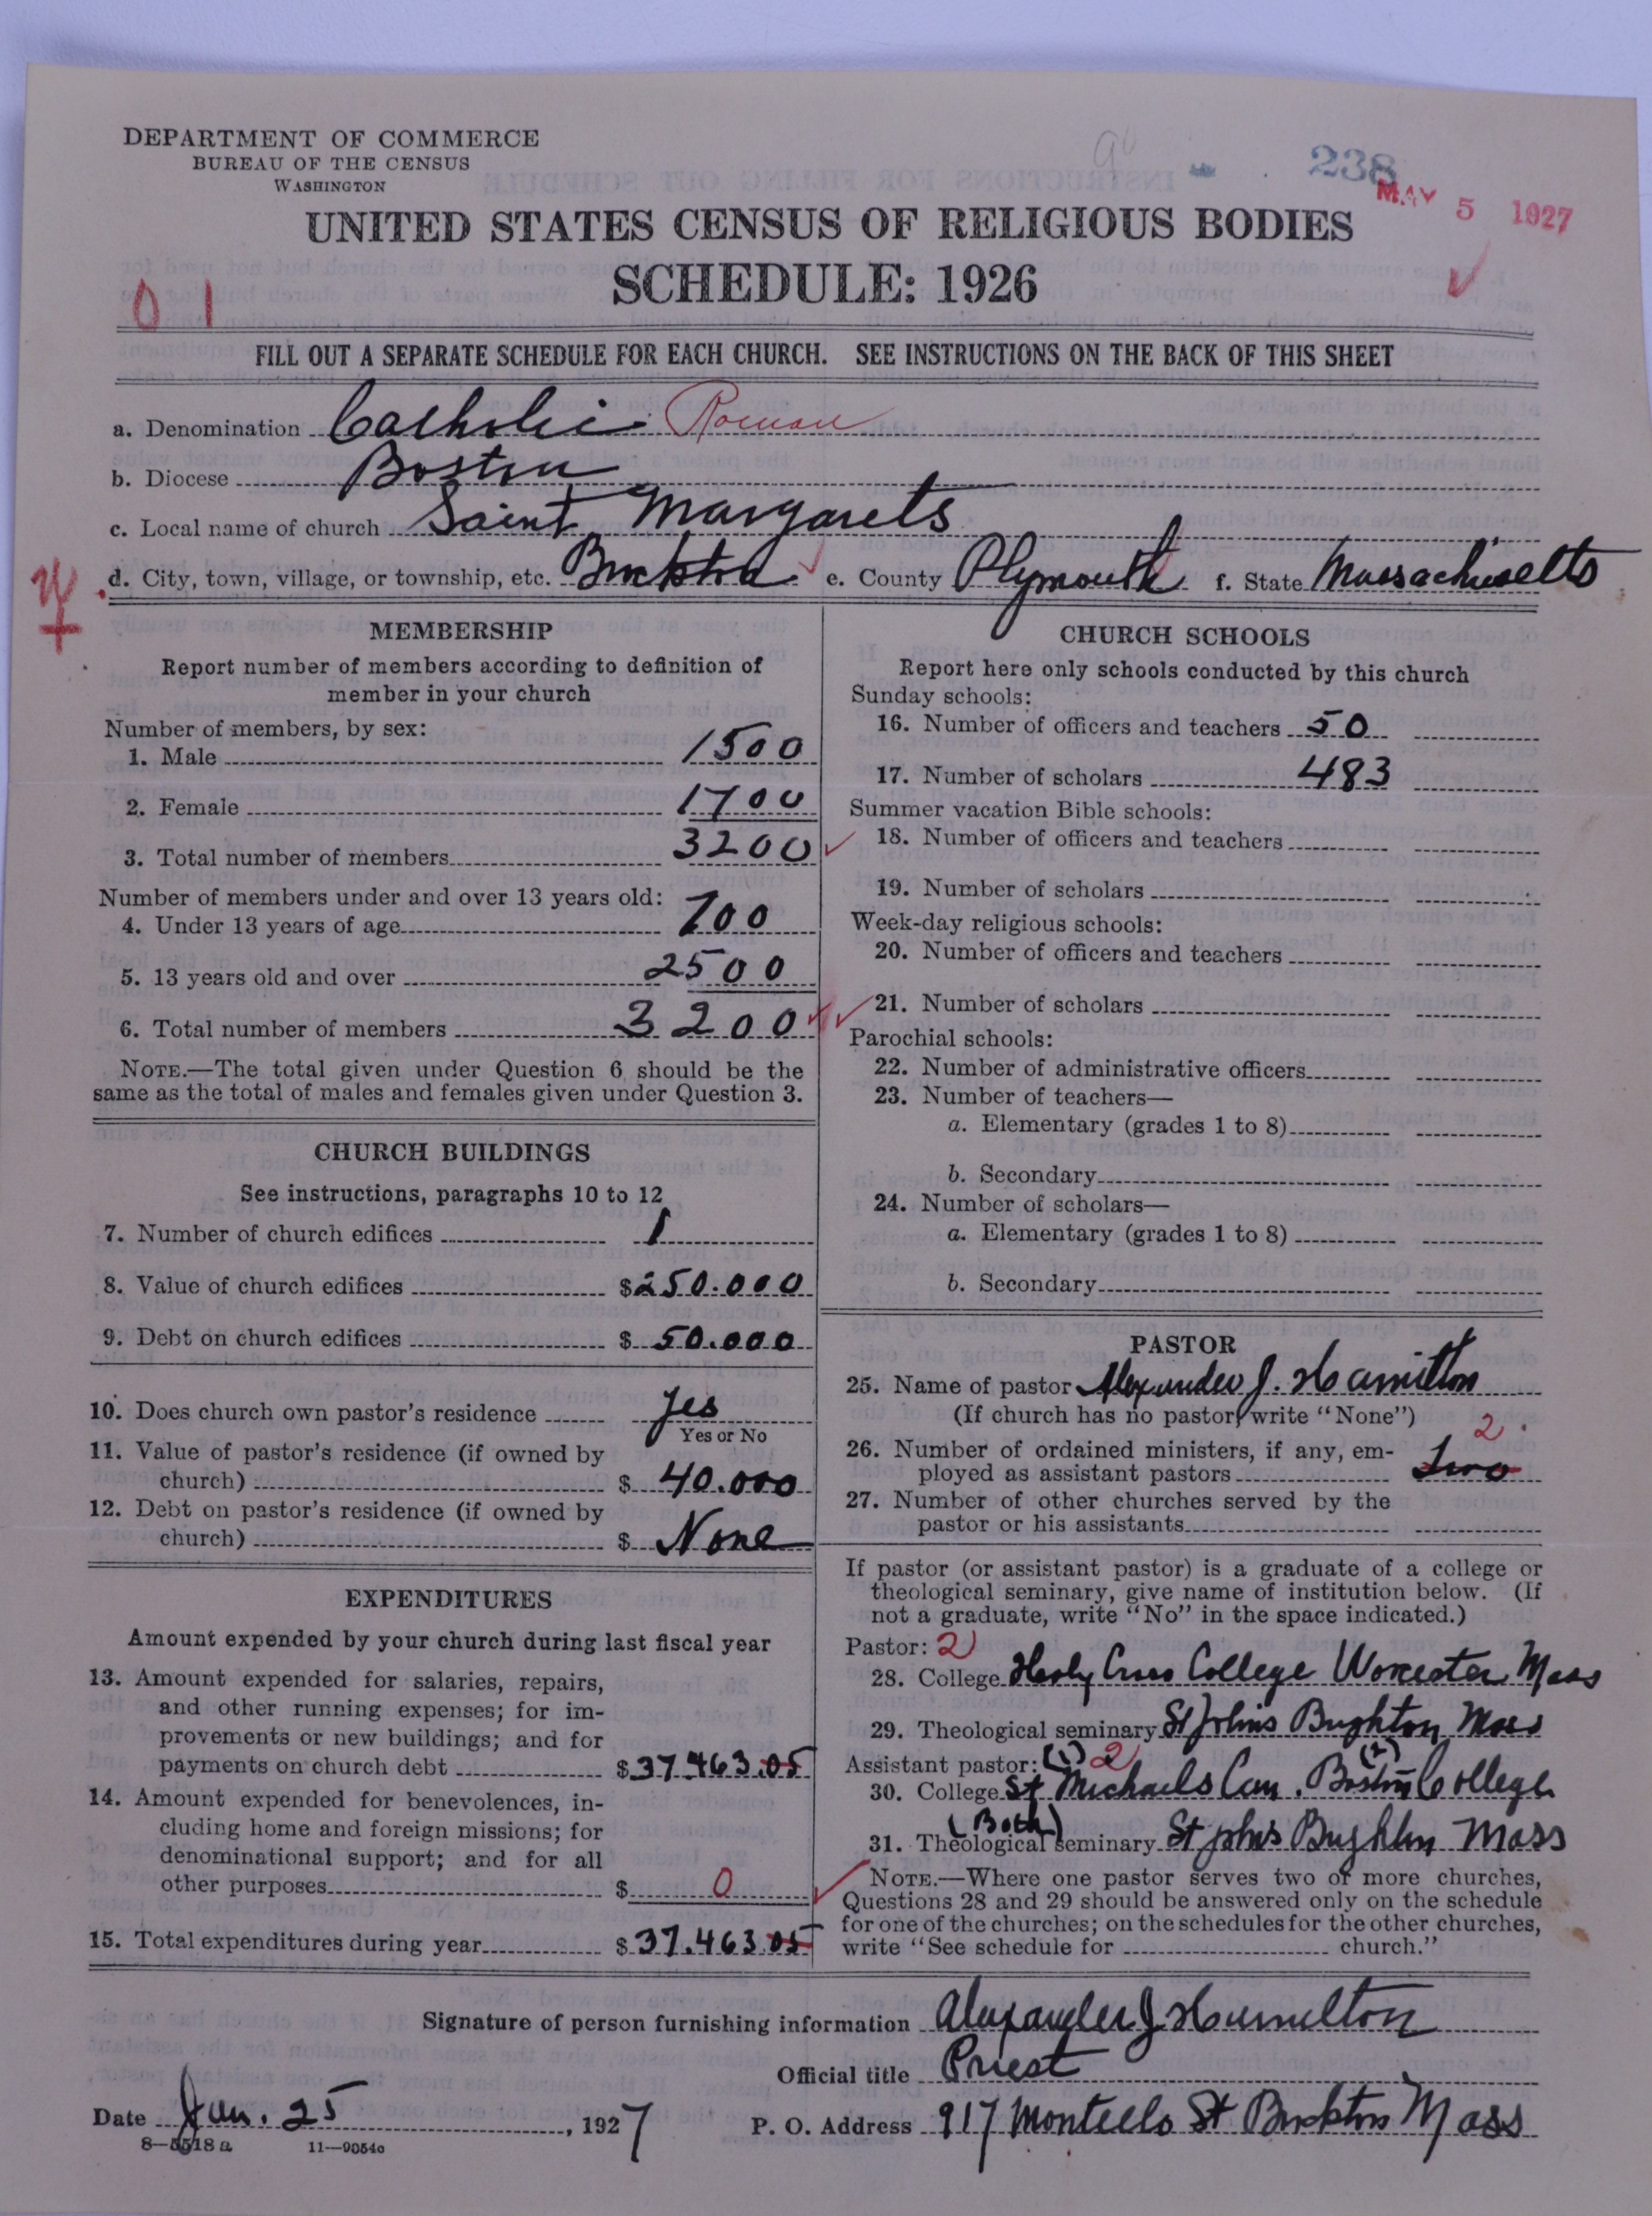 DEPARTMENT OF COMMERCE
BUREAU OF THE CENSUS
WASHINGTON
90
238
MAY 5 1927
UNITED STATES CENSUS OF RELIGIOUS BODIES
SCHEDULE: 1926
0 1
FILL OUT A SEPARATE SCHEDULE FOR EACH CHURCH. SEE INSTRUCTIONS ON THE BACK OF THIS SHEET
a. Denomination Catholic Roman
b. Diocese Boston
c. Local name of church Saint Margarets
d. City, town, village, or township, etc. Brockton e. County Plymouth f. State Massachusetts
MEMBERSHIP
Report number of members according to definition of
member in your church
Number of members, by sex:
1. Male 1500
2. Female 1700
3. Total number of members 3200
Number of members under and over 13 years old:
4. Under 13 years of age 700
5. 13 years old and over 2500
6. Total number of members 3200
NOTE.—The total given under Question 6 should be the
same as the total of males and females given under Question 3.
CHURCH BUILDINGS
See instructions, paragraphs 10 to 12
7. Number of church edifices 1
8. Value of church edifices $250.000
9. Debt on church edifices $ 50.000
10. Does church own pastor's residence Yes
Yes or No
11. Value of pastor's residence (if owned by
church) $ 40.000
12. Debt on pastor's residence (if owned by
church) $ None
EXPENDITURES
Amount expended by your church during last fiscal year
13. Amount expended for salaries, repairs,
and other running expenses; for im-
provements or new buildings; and for
payments on church debt $37.463.05
14. Amount expended for benevolences, in-
cluding home and foreign missions; for
denominational support; and for all
other purposes $ 0
15. Total expenditures during year $37.463.05
CHURCH SCHOOLS
Report here only schools conducted by this church
Sunday schools:
16. Number of officers and teachers 50
17. Number of scholars 483
Summer vacation Bible schools:
18. Number of officers and teachers
19. Number of scholars
Week-day religious schools:
20. Number of officers and teachers
21. Number of scholars
Parochial schools:
22. Number of administrative officers
23. Number of teachers—
a. Elementary (grades 1 to 8)
b. Secondary
24. Number of scholars—
a. Elementary (grades 1 to 8)
b. Secondary
PASTOR
25. Name of pastor Alexander J. Hamilton
(If church has no pastor, write "None")
2
26. Number of ordained ministers, if any, em-
ployed as assistant pastors Two
27. Number of other churches served by the
pastor or his assistants
If pastor (or assistant pastor) is a graduate of a college or
theological seminary, give name of institution below. (If
not a graduate, write "No" in the space indicated.)
Pastor: 2
28. College Holy Cross College Worcester Mass
29. Theological seminary St Johns Brighton Mass
Assistant pastor: (1) 2 (2)
30. College St Michaels Can. Boston College
(Both)
31. Theological seminary St Johns Brighton Mass
NOTE.—Where one pastor serves two or more churches,
Questions 28 and 29 should be answered only on the schedule
for one of the churches; on the schedules for the other churches,
write "See schedule for church."
Signature of person furnishing information Alexander J Hamilton
Official title Priest
Date Jan. 25, 1927 P. O. Address 917 Montello St Brockton Mass
8—5518 a 11—9054a